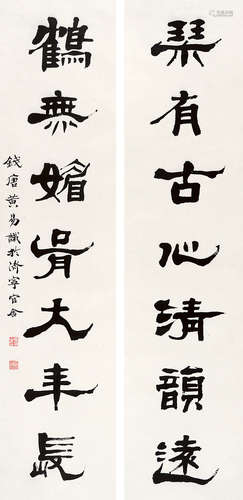 琴有古心清韻遠
鶴無媚骨大年長
錢唐黃易識於濟寧官舍